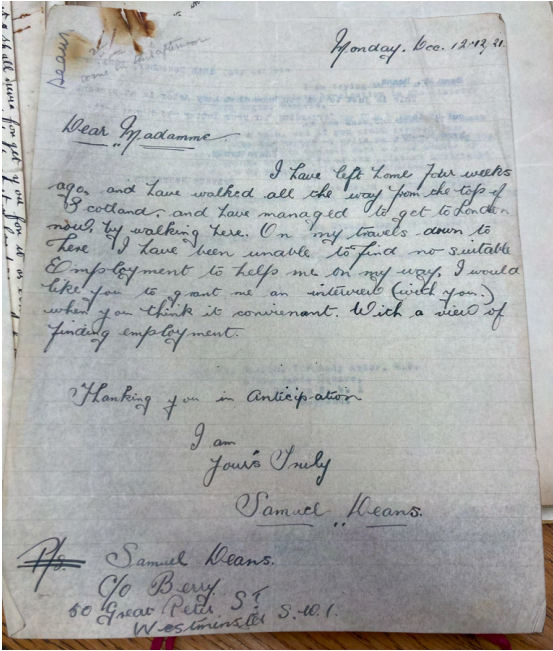 Deans
come in afternoon
Monday. Dec. 12.12.21.
Dear Madamme
I have left home four weeks
ago, and have walked all the way from the top of
Scotland, and have managed to get to London
now, by walking here. On my travels down to
here I have been unable to find no suitable
Employment to helps me on my way, I would
like you to grant me an interview (with you.)
when you think it convienant. With a view of
finding employment.
Thanking you in Anticipation
I am
Yours Truly
Samuel Deans.
P/s. Samuel Deans.
C/o Berry
60 Great Peter St
Westminster S.W.1.